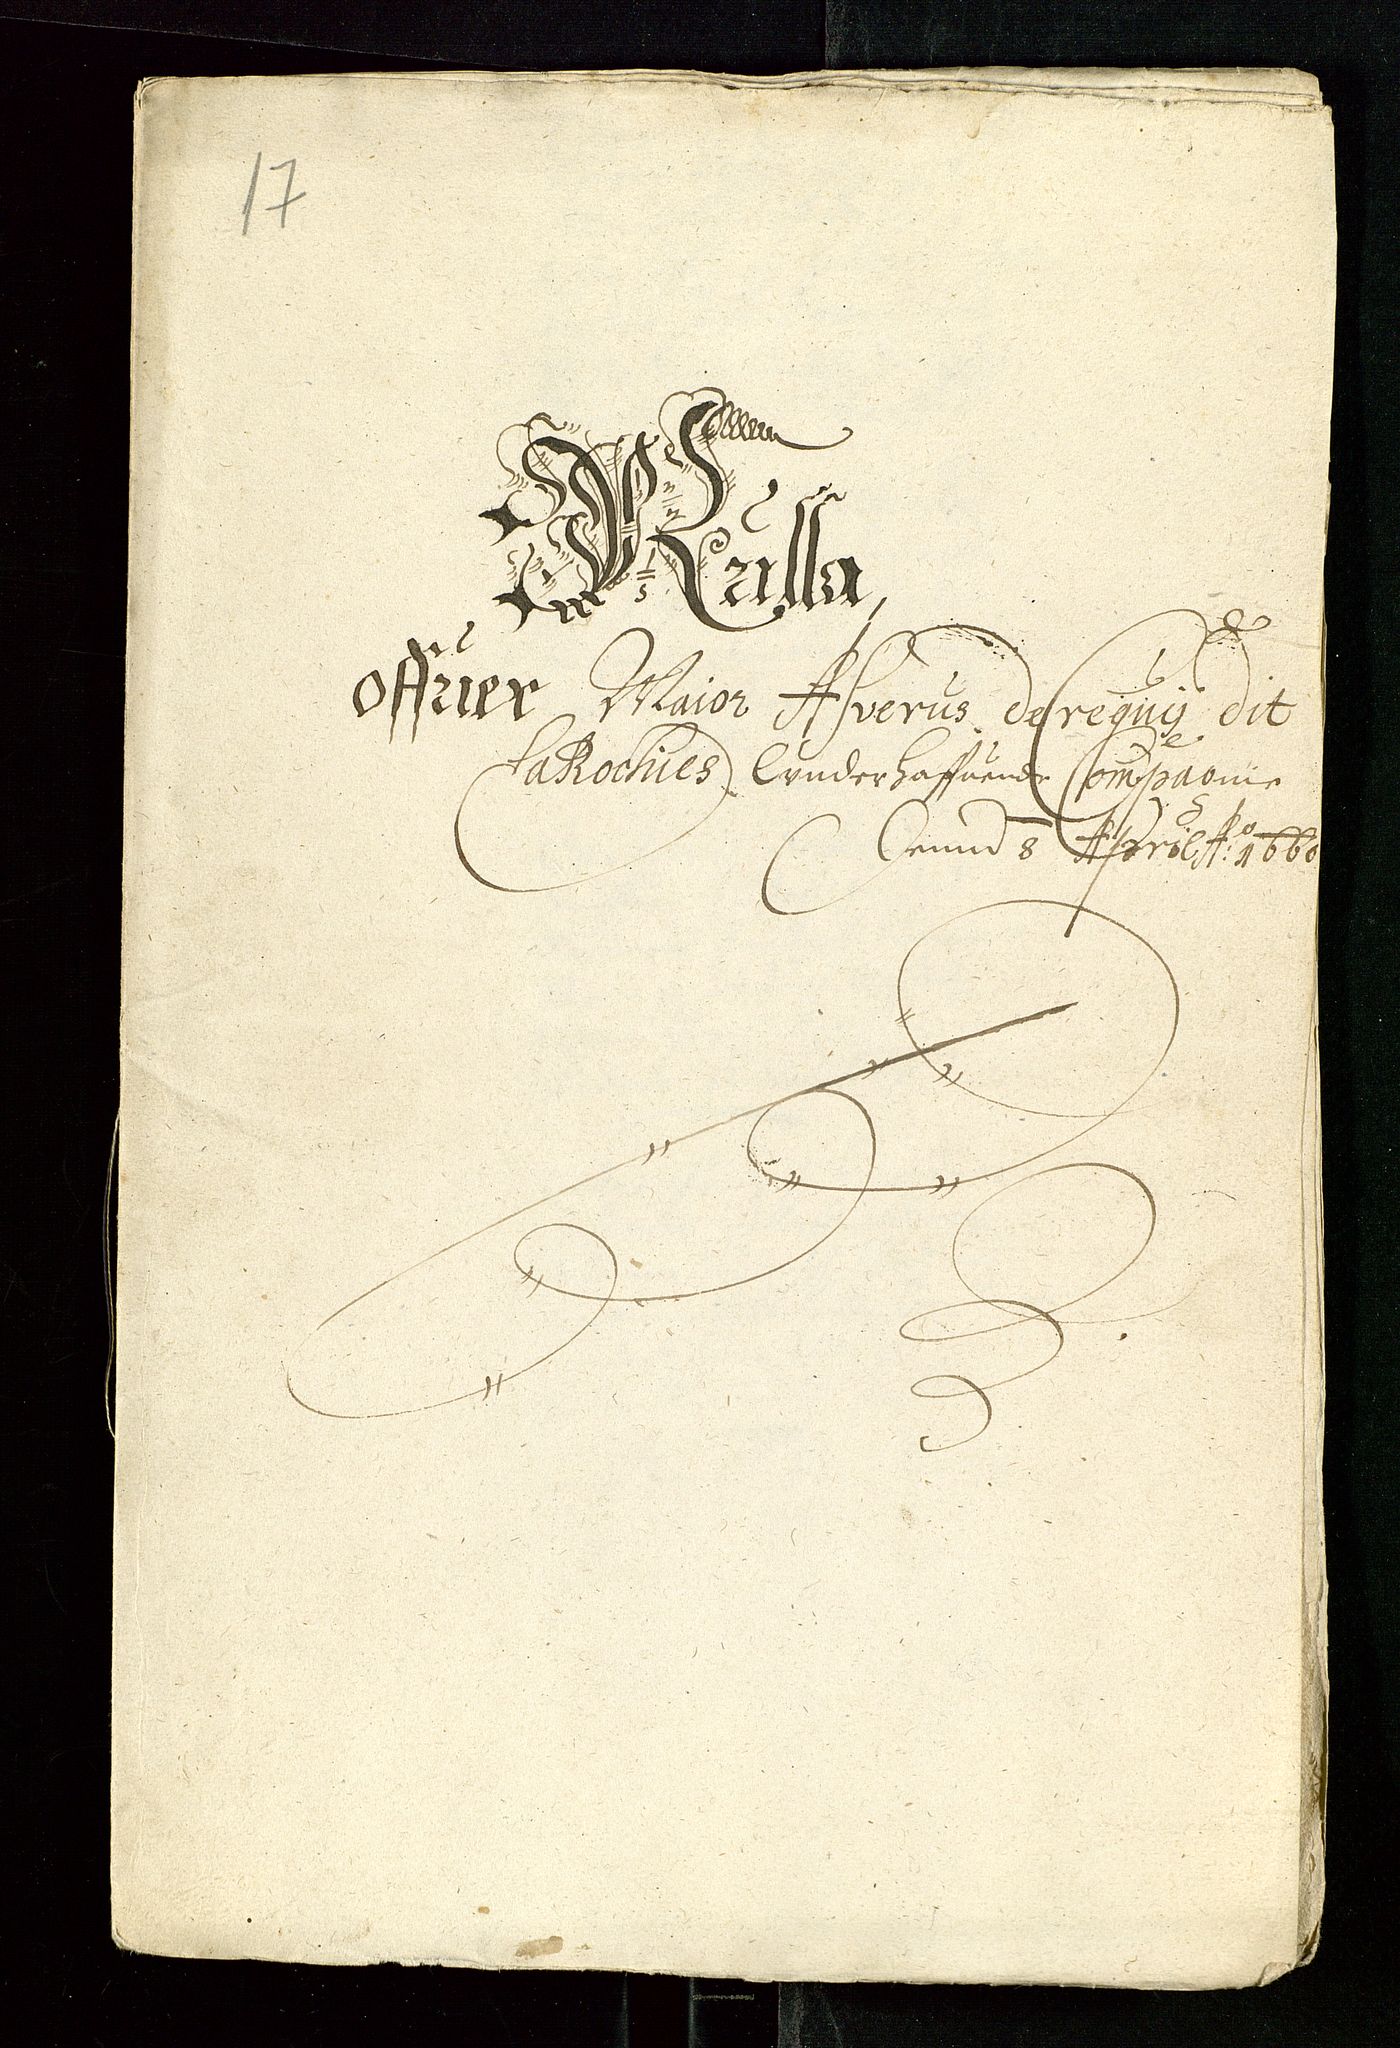 17
Rulla,
offuer Maior Asverus de reguij dit
laRochies Vnderhaffuende Compaonie
Dennd 8 April Ao: 1660